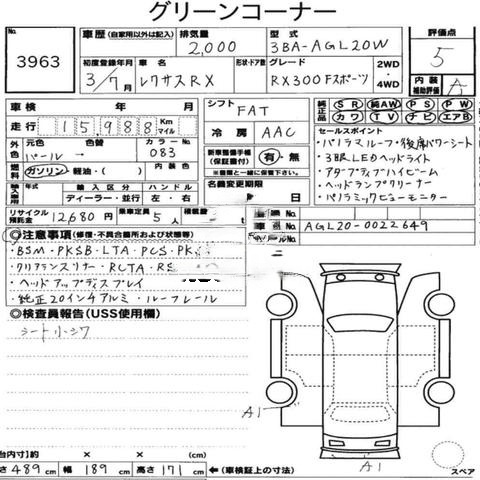 グリーンコーナー
No. 3963
車歴 (自家用以外は記入) 排気量 2,000 型式 3BA-AGL20W 評価点 5
初度登録年月 3/7月 車名 レクサスRX 形状・ドア数 グレード RX300 Fスポーツ 2WD・4WD 内装補助評価 A
車検 年 月 シフト FAT 純正品 SR 純AW PS PW
走行 15988 Km マイル 冷房 AAC カワ TV ナビ エアB
外色 元色 パール 色替 カラーNo. 083
燃料 ガソリン 軽油・( ) 内装色
新車整備手帳(保証書付) 有・無
※車と一緒に保管して下さい。
セールスポイント
・パノラマルーフ・後席パワーシート
・3眼LEDヘッドライト
・アダプティブハイビーム
・ヘッドランプクリーナー
・パノラミックビューモニター
輸入車 年式 輸入区分 ハンドル
ディーラー・並行 左・右
名義変更期限 月 日
リサイクル預託金 12680円 乗車定員 5人 積載量
車台No. AGL20-0022649
◎注意事項(修復・不具合箇所および状態等)
・BSM・PKSB・LTA・PCS・PK
・クリアランスソナー・RCTA・RS
・ヘッドアップディスプレイ
・純正20インチアルミ・ルーフレール
◎検査員報告(USS使用欄)
シート小シワ
A1
A1
台内寸)約 × × (cm)
さ 489cm 幅 189cm 高さ 171cm ←(車検証上の寸法)
スペア